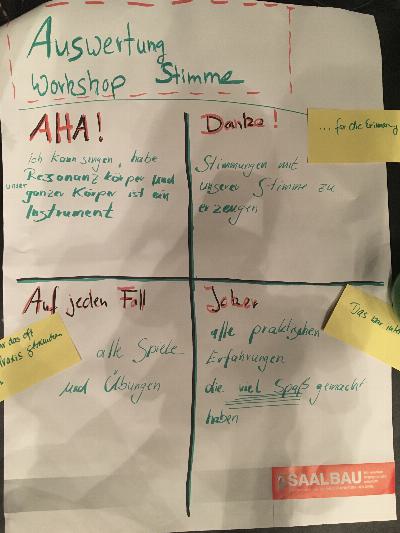 Auswertung
Workshop Stimme
AHA!
ich kann singen, habe
Resonanzkörper und
unser ganzer Körper ist ein
Instrument
Danke!
... für die Erinnerung
Stimmungen mit
unserer Stimme zu
erzeugen
Auf jeden Fall
das oft
alle Spiele
und Übungen
Joker
Das war
alle praktischen
Erfahrungen
die viel Spaß gemacht
haben
SAALBAU